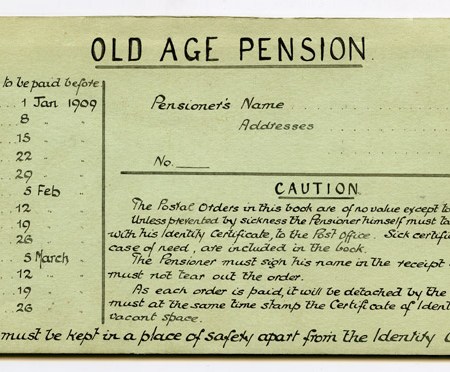 OLD AGE PENSION
to be paid before
1 Jan 1909
8
15
22
29
5 Feb
12
19
26
5 March
12
19
26
Pensioner's Name
Addresses
No.
CAUTION
The Postal Orders in this book are of no value except to
Unless prevented by sickness the Pensioner himself must ta
with his Identity Certificate, to the Post Office. Sick certif
case of need, are included in the book.
The Pensioner must sign his name in the receipt
must not tear out the order.
As each order is paid, it will be detached by the
must at the same time stamp the Certificate of Ident
vacant space.
must be kept in a place of safety apart from the Identity C